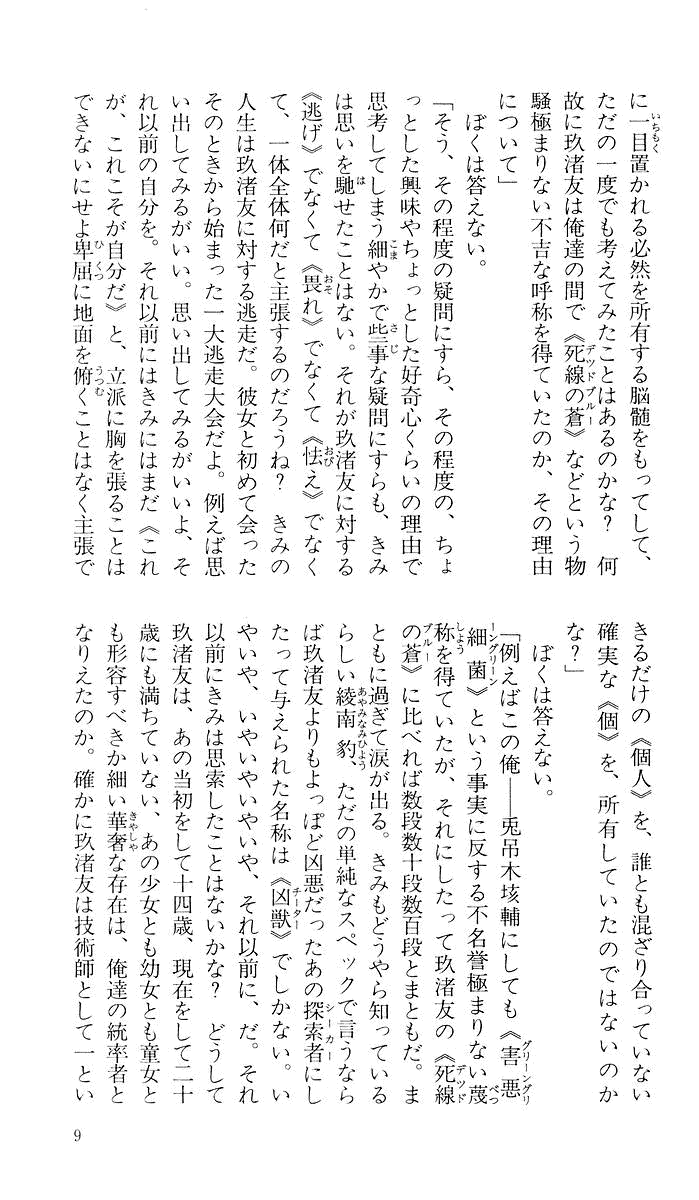 に一目置かれる必然を所有する脳髄をもってして、
ただの一度でも考えてみたことはあるのかな？　何
故に玖渚友は俺達の間で《死線の蒼》などという物
騒極まりない不吉な呼称を得ていたのか、その理由
について」
　ぼくは答えない。
「そう、その程度の疑問にすら、その程度の、ちょ
っとした興味やちょっとした好奇心くらいの理由で
思考してしまう細やかで些事な疑問にすらも、きみ
は思いを馳せたことはない。それが玖渚友に対する
《逃げ》でなくて《畏れ》でなくて《怯え》でなく
て、一体全体何だと主張するのだろうね？　きみの
人生は玖渚友に対する逃走だ。彼女と初めて会った
そのときから始まった一大逃走大会だよ。例えば思
い出してみるがいい。思い出してみるがいいよ、そ
れ以前の自分を。それ以前にはきみにはまだ《これ
が、これこそが自分だ》と、立派に胸を張ることは
できないにせよ卑屈に地面を俯くことはなく主張で
きるだけの《個人》を、誰とも混ざり合っていない
確実な《個》を、所有していたのではないのか
な？」
　ぼくは答えない。
「例えばこの俺――兎吊木垓輔にしても《害悪
細菌》という事実に反する不名誉極まりない蔑
称を得ていたが、それにしたって玖渚友の《死線
の蒼》に比べれば数段数十段数百段とまともだ。ま
ともに過ぎて涙が出る。きみもどうやら知っている
らしい綾南豹、ただの単純なスペックで言うなら
ば玖渚友よりもよっぽど凶悪だったあの探索者にし
たって与えられた名称は《凶獣》でしかない。い
やいや、いやいやいやいや、それ以前に、だ。それ
以前にきみは思索したことはないかな？　どうして
玖渚友は、あの当初をして十四歳、現在をして二十
歳にも満ちていない、あの少女とも幼女とも童女と
も形容すべきか細い華奢な存在は、俺達の統率者と
なりえたのか。確かに玖渚友は技術師として一とい
9